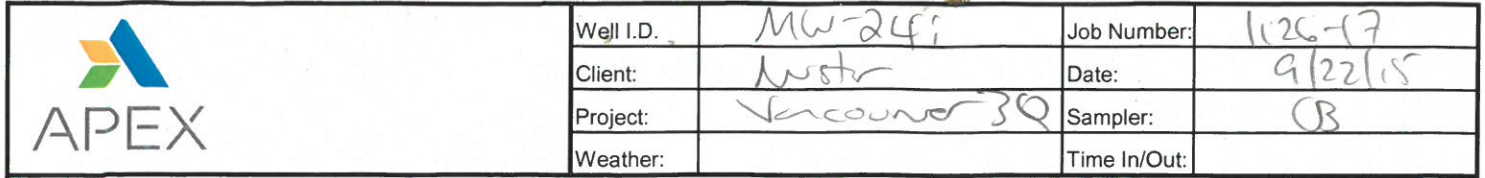 APEX
Well I.D. MW-24i Job Number: 1126-17
Client: Date: 9/22/15
Project: Vancouver 3Q Sampler: CB
Weather: Time In/Out: